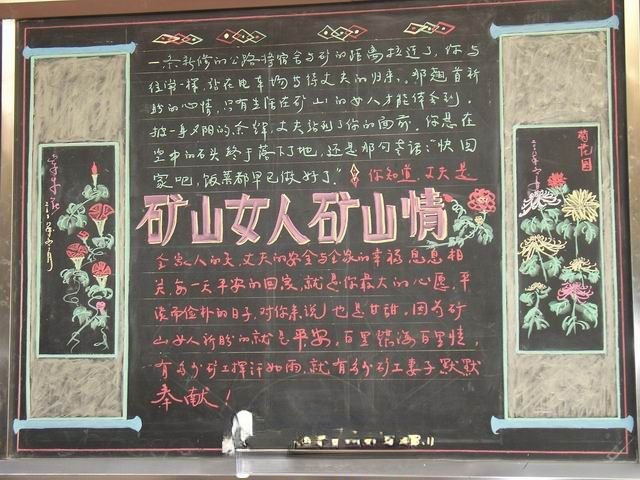 一条新修的公路将宿舍与矿的距离拉近了，你与
往常一样，站在电车场等待丈夫的归来。那翘首祈
盼的心情，只有生活在矿山的女人才能体会到。
披一身夕阳的余辉，丈夫站到了你的面前。你悬在
空中的石头终于落下了地，还是那句老话："快回
家吧，饭菜都早已做好了。"你知道，丈夫是
矿山女人矿山情
全家人的天，丈夫的安全与全家的幸福息息相
关，每一天平安的回家，就是你最大的心愿，平
淡而俭朴的日子，对你来说，也是甘甜。因为矿
山女人祈盼的就是平安，百里煤海百里情，
有多少矿工挥汗如雨，就有多少矿工妻子默默
奉献！
菊花园